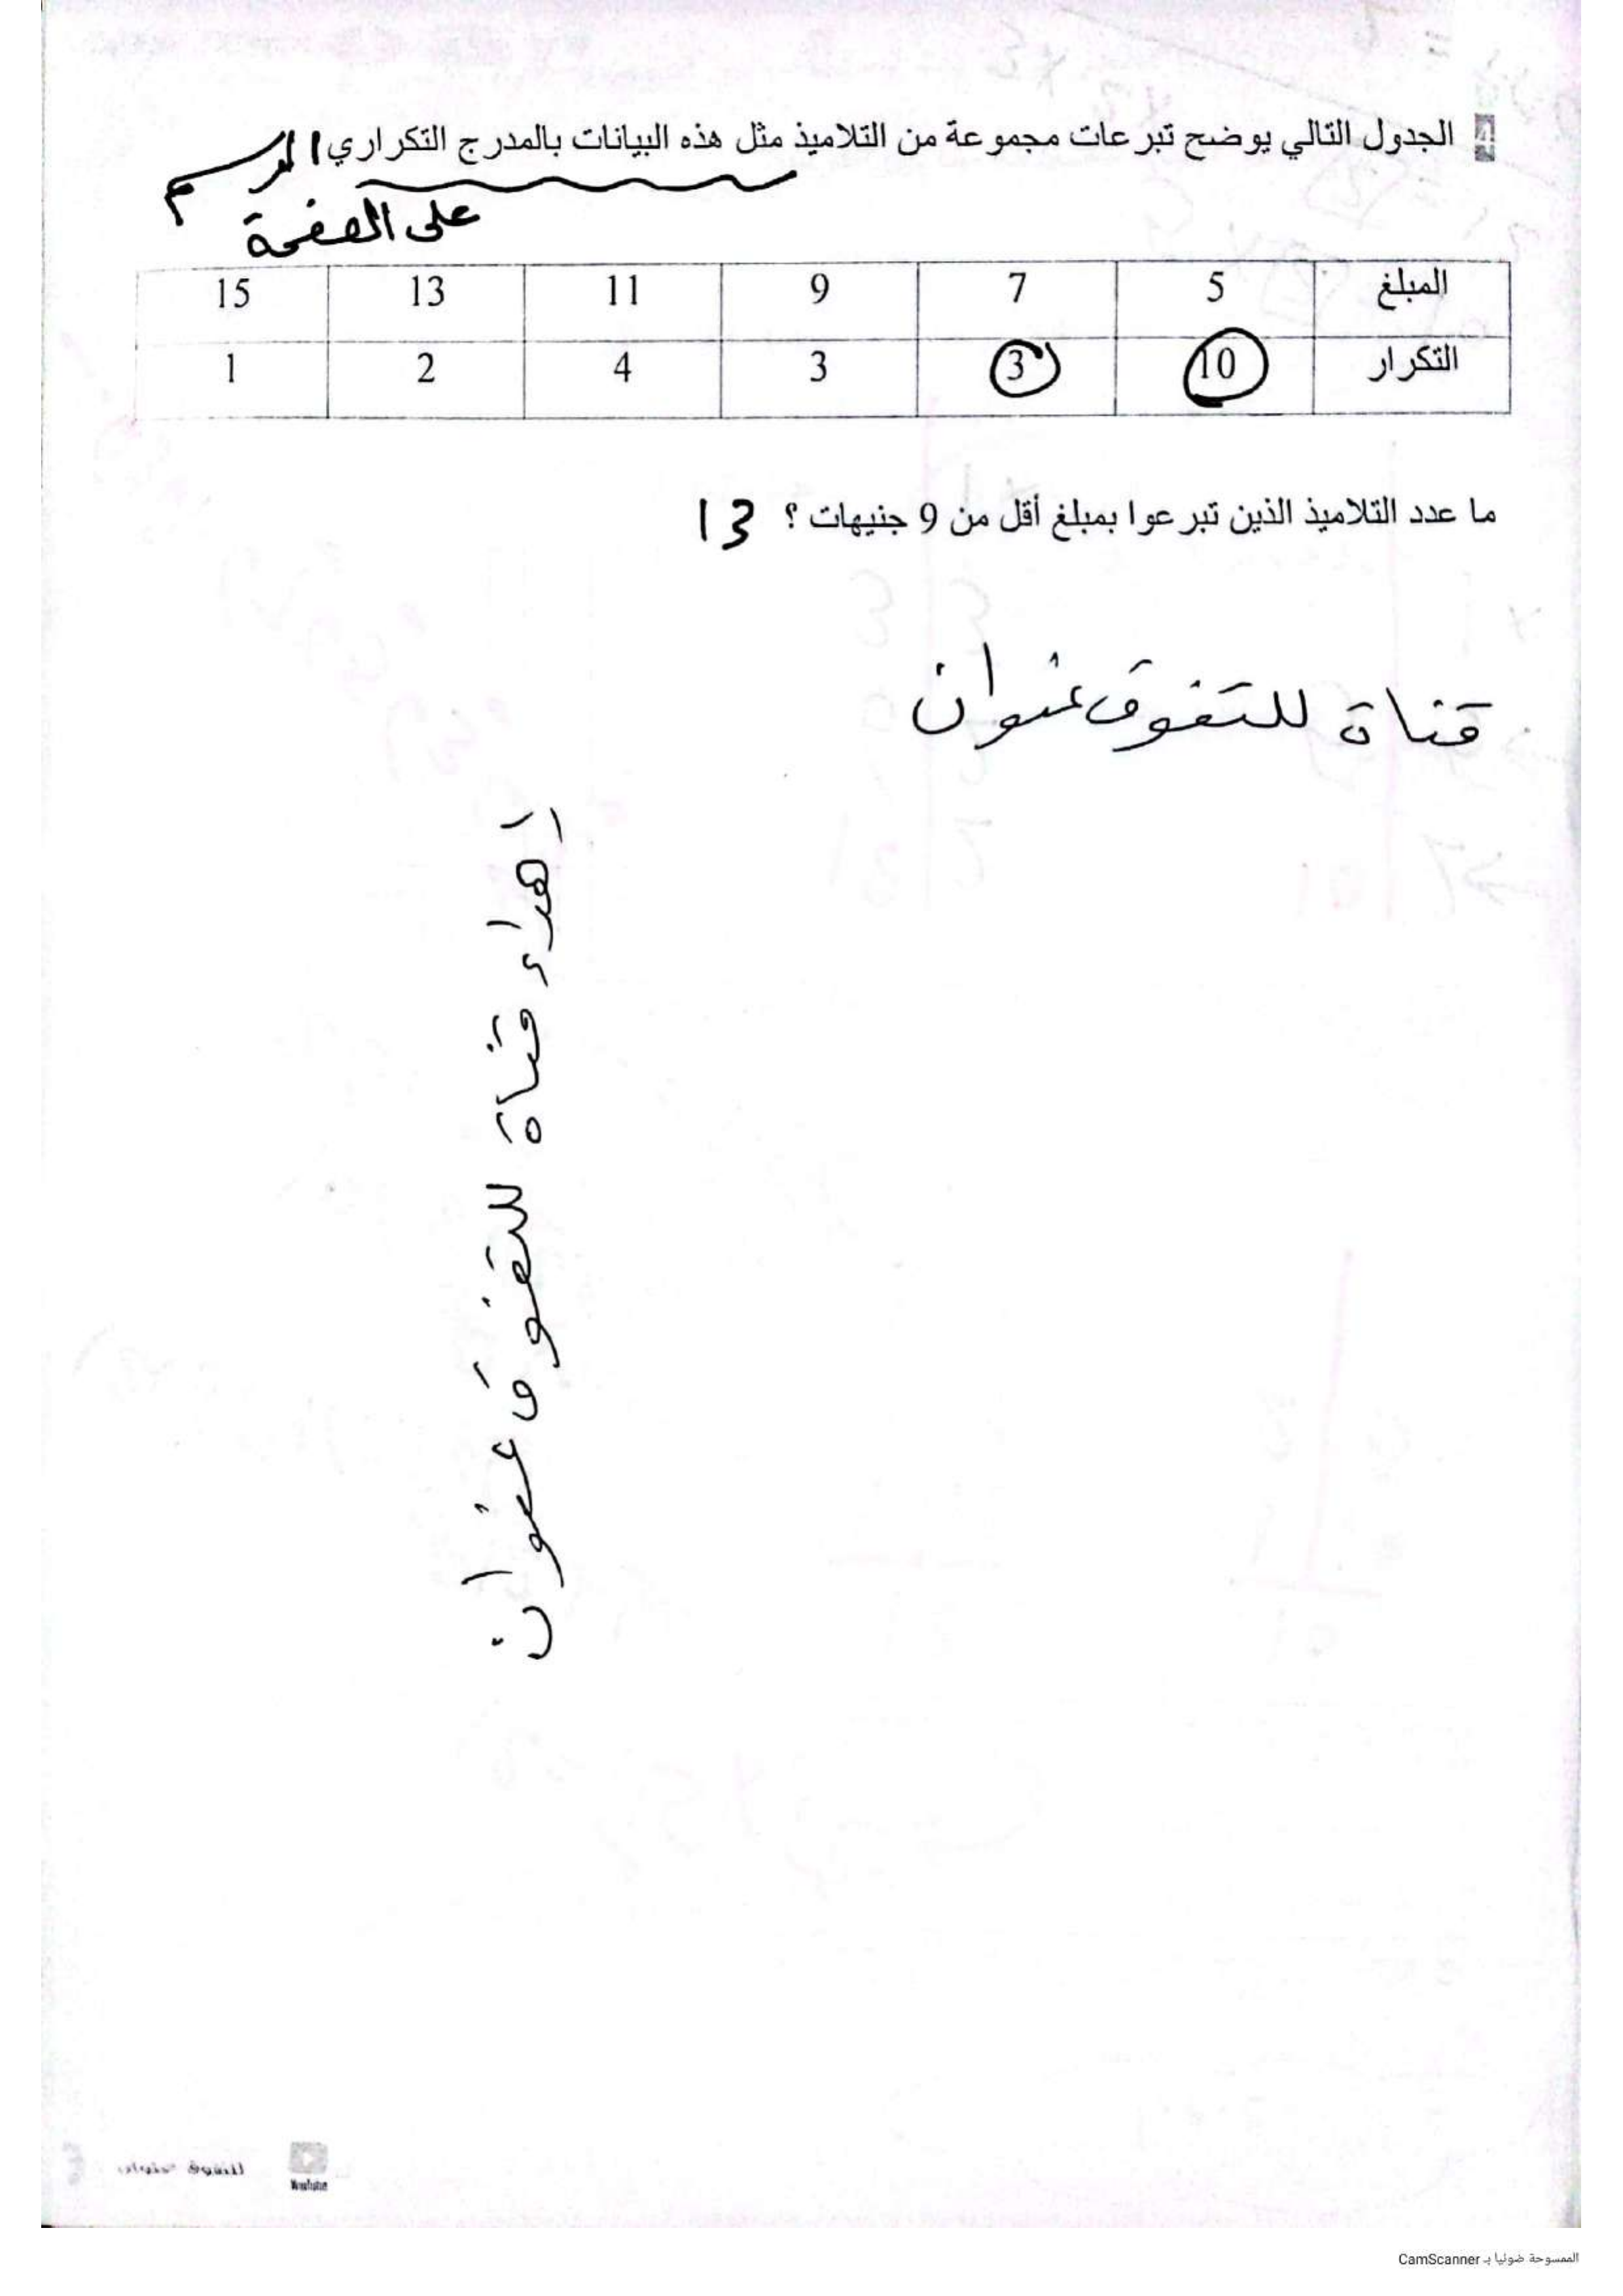 4 الجدول التالي يوضح تبرعات مجموعة من التلاميذ مثل هذه البيانات بالمدرج التكراري الرسم
على الصفحة
المبلغ 5 7 9 11 13 15
التكرار 10 3 3 4 2 1
ما عدد التلاميذ الذين تبرعوا بمبلغ أقل من 9 جنيهات ؟ 13
قناة للتفوق عنوان
اهداء قناة للتفوق عنوان
للتفوق عنوان
YouTube
الممسوحة ضوئيا بـ CamScanner